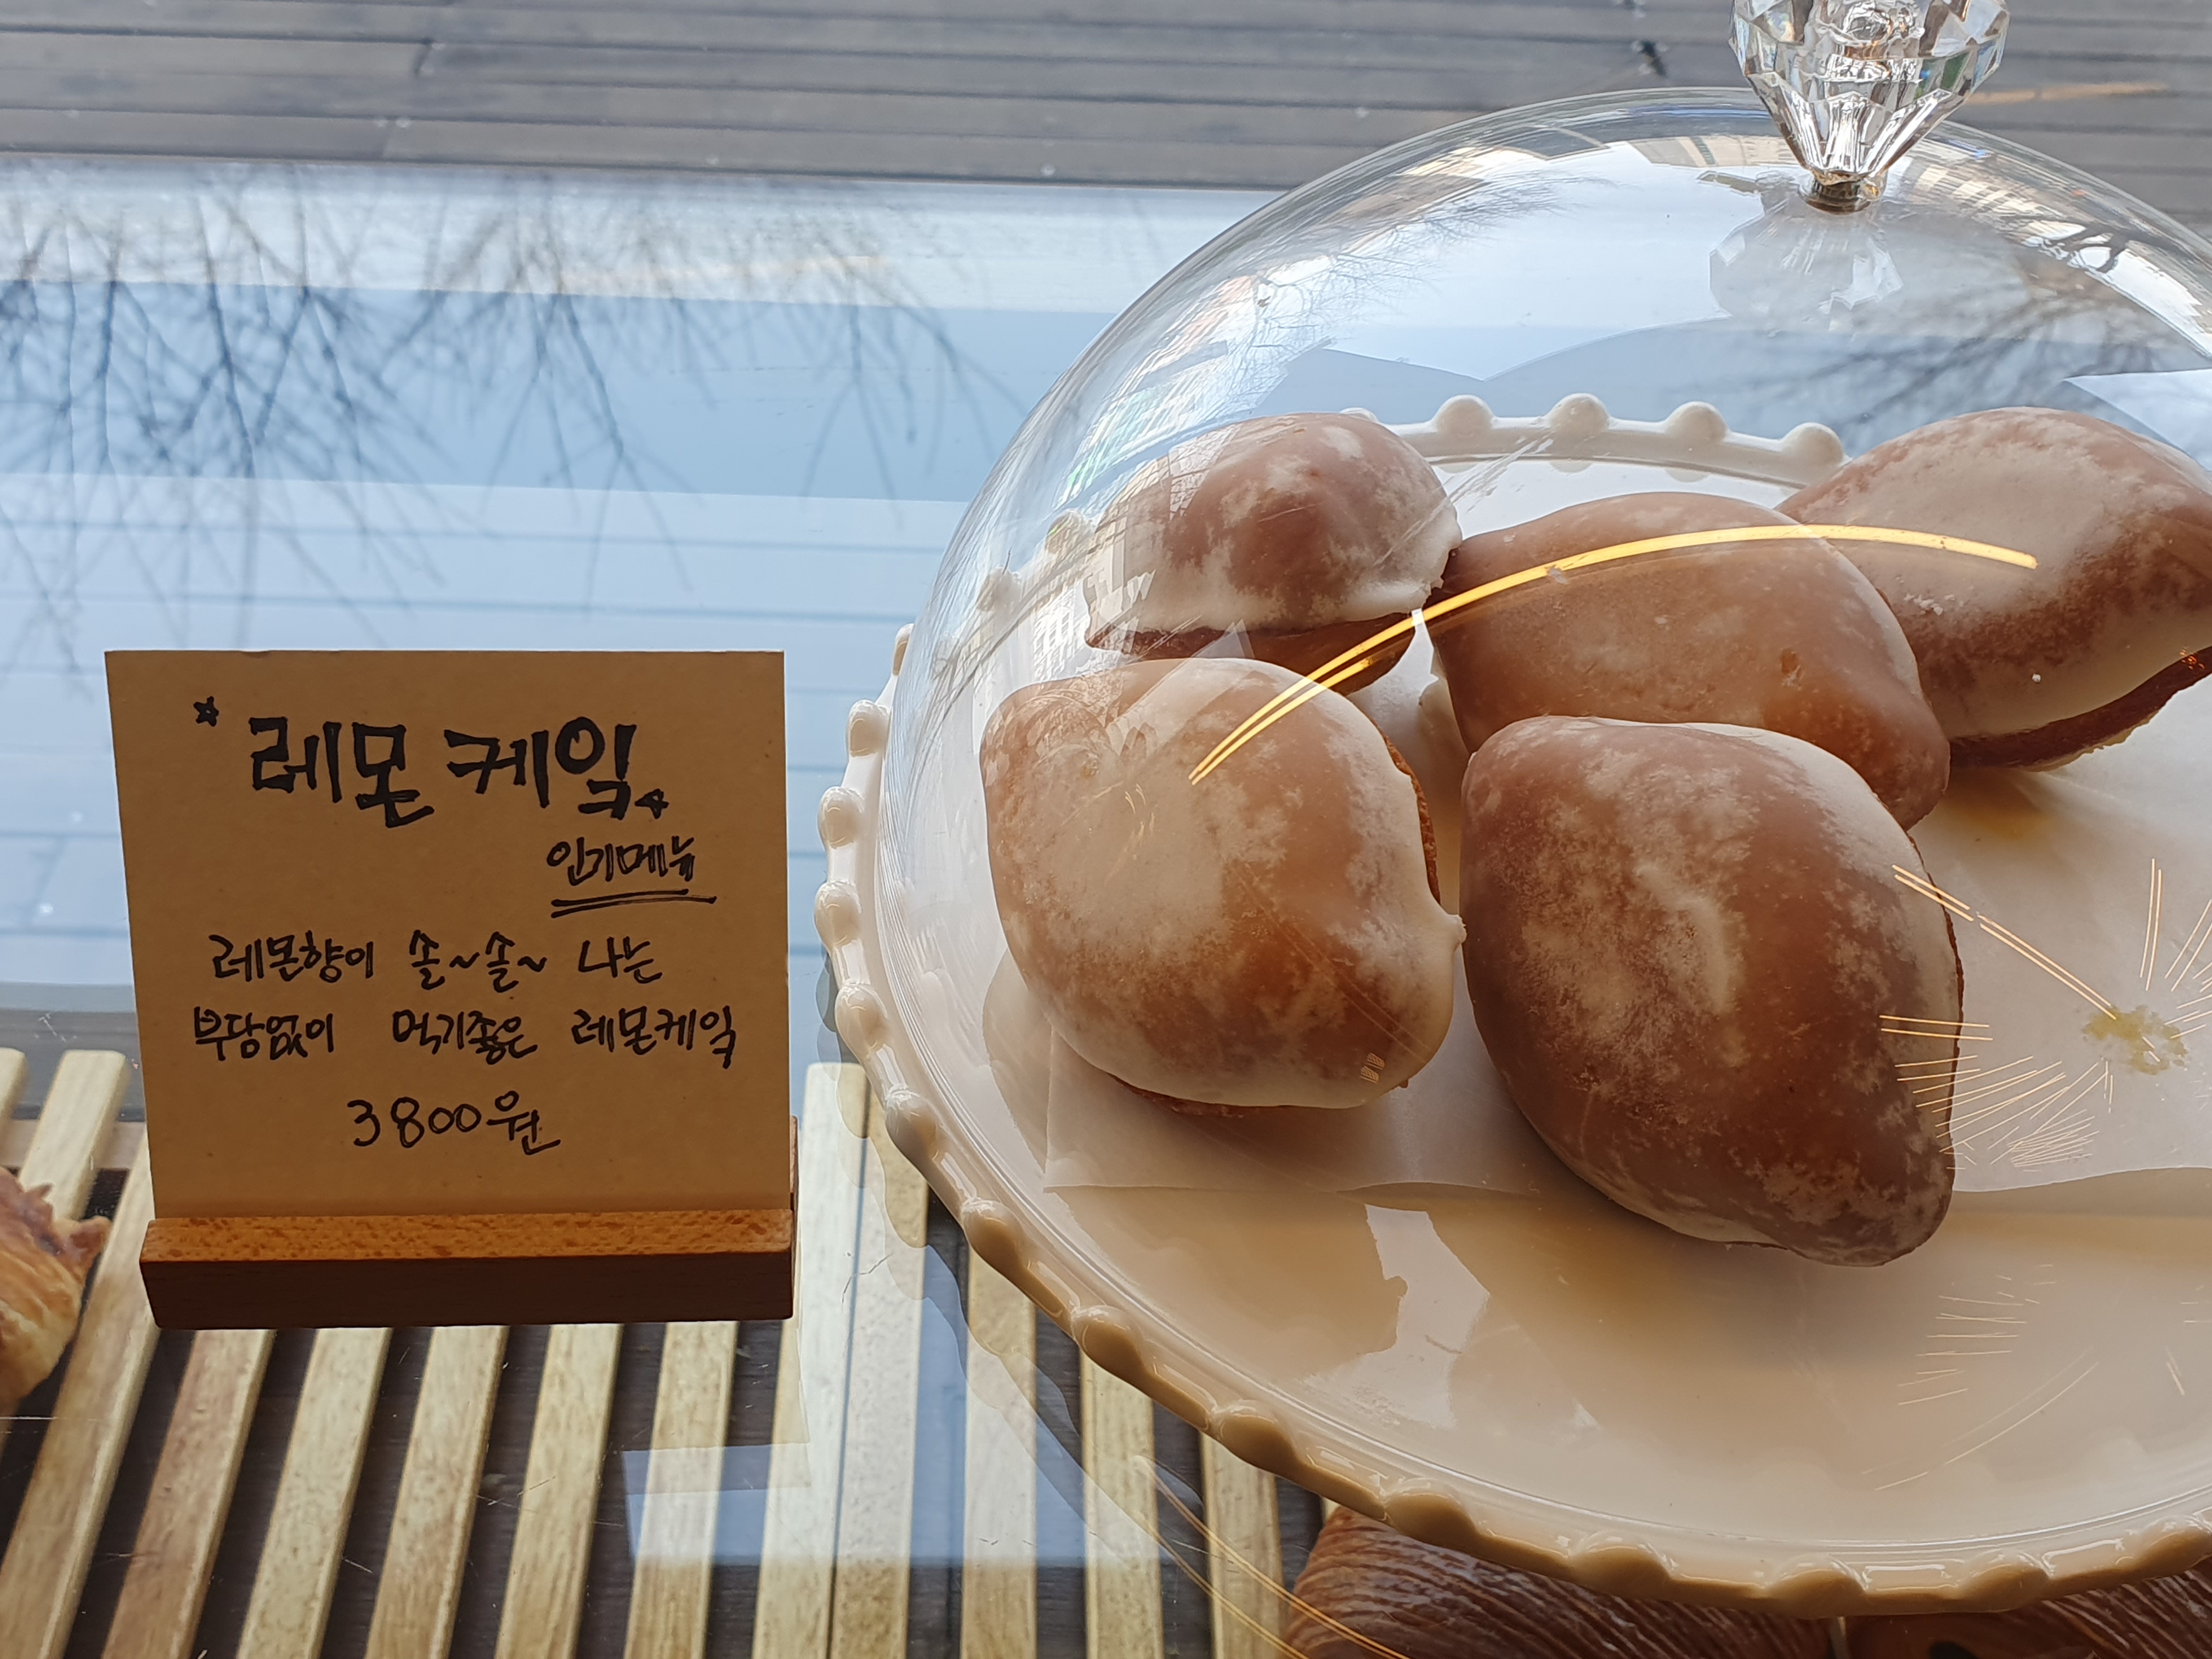 레몬 케잌
인기메뉴
레몬향이 솔~솔~ 나는
부담없이 먹기좋은 레몬케잌
3800원